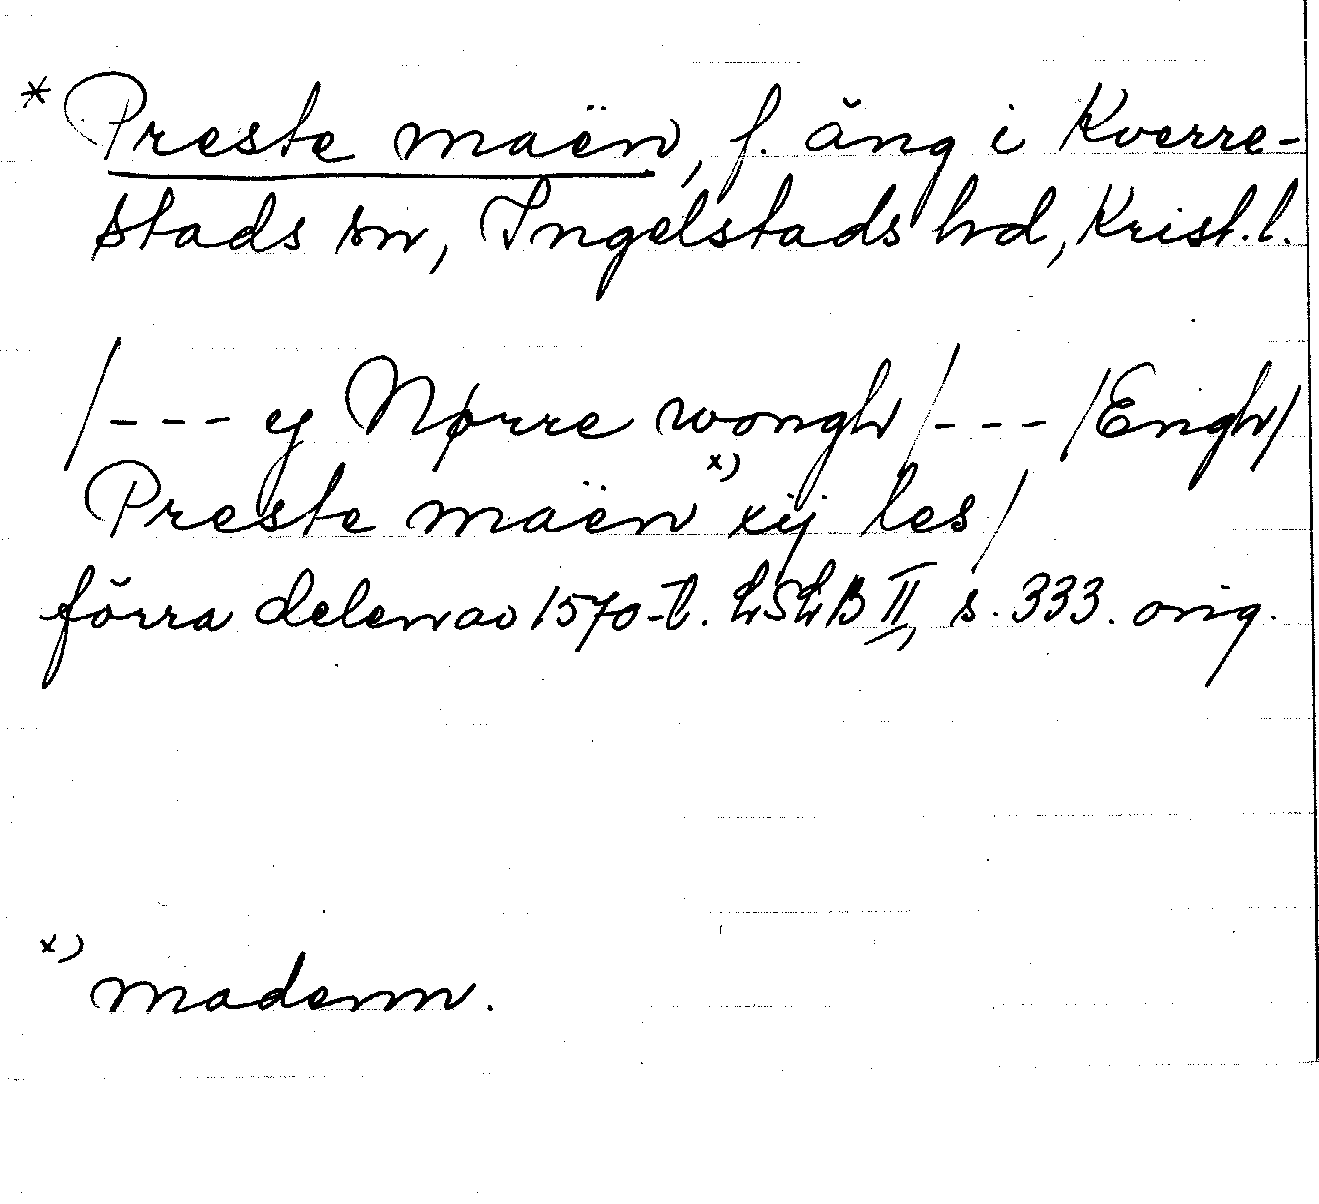 * Preste maën, f. äng i Kverre-
stads sn, Ingelstads hd, Krist. l.
/--- ej Nørre wongh/--- /Engh/
Preste maën x) xij les/
förra delen av 1570-t. LSLB II, s. 333. orig.
x) madenn.